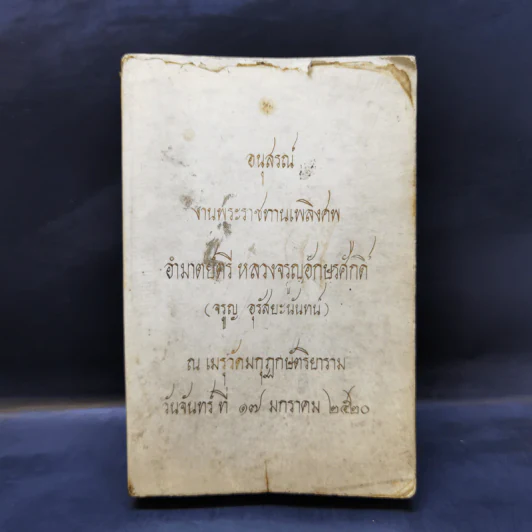 อนุสรณ์
งานพระราชทานเพลิงศพ
อำมาตย์ตรี หลวงจรูญอักษรศักดิ์
(จรูญ อุรัสยะนันทน์)
ณ เมรุวัดมกุฏกษัตริยาราม
วันจันทร์ ที่ ๑๗ มกราคม ๒๕๒๐